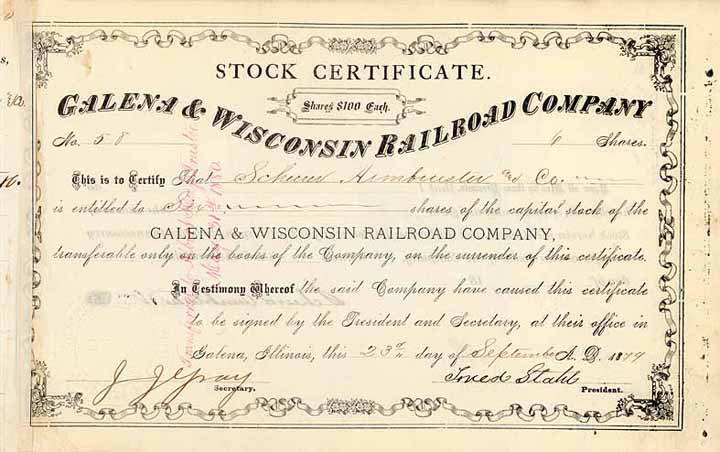 STOCK CERTIFICATE.
Shares $100 Each.
GALENA & WISCONSIN RAILROAD COMPANY
No. 58 6 Shares.
This is to Certify That Scheuer Armbruster and Co.
is entitled to Six shares of the capital stock of the
GALENA & WISCONSIN RAILROAD COMPANY,
transferable only on the books of the Company, on the surrender of this certificate.
In Testimony Whereof the said Company have caused this certificate
to be signed by the President and Secretary, at their office in
Galena, Illinois, this 23rd day of September A. D. 1879
J J Gray Stahl
Secretary. President.